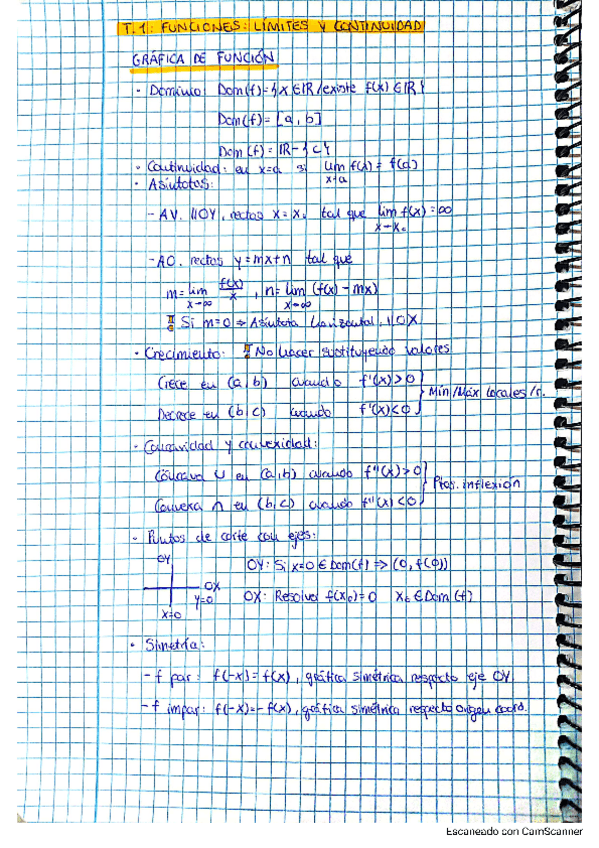 T.1: FUNCIONES: LÍMITES Y CONTINUIDAD
GRÁFICA DE FUNCIÓN
· Dominio: Dom(f)={x∈IR/existe f(x)∈IR}
Dom(f)=[a,b]
Dom(f)=IR-{c}
· Continuidad: en x=a si lim f(x)=f(a)
x→a
· Asíntotas:
- AV. ||OY, rectas x=x₀ tal que lim f(x)=∞
x→x₀
- AO. rectas y=mx+n tal que
m=lim f(x)/x, n=lim (f(x)-mx)
x→∞ x→∞
! Si m=0 ⇒ Asíntota horizontal, ||OX
· Crecimiento: ! No hacer sustituyendo valores
Crece en (a,b) cuando f'(x)>0
Decrece en (b,c) cuando f'(x)<0 } Mín/Máx locales/r.
· Concavidad y convexidad:
Cóncava ∪ en (a,b) cuando f''(x)>0
Convexa ∩ en (b,c) cuando f''(x)<0 } Ptos. inflexión
· Puntos de corte con ejes:
OY OY: Si x=0∈Dom(f) ⇒ (0, f(0))
OX
y=0 OX: Resolver f(x₀)=0 x₀∈Dom(f)
x=0
· Simetría:
- f par: f(-x)=f(x), gráfica simétrica respecto eje OY.
- f impar: f(-x)=-f(x), gráfica simétrica respecto origen coord.
Escaneado con CamScanner